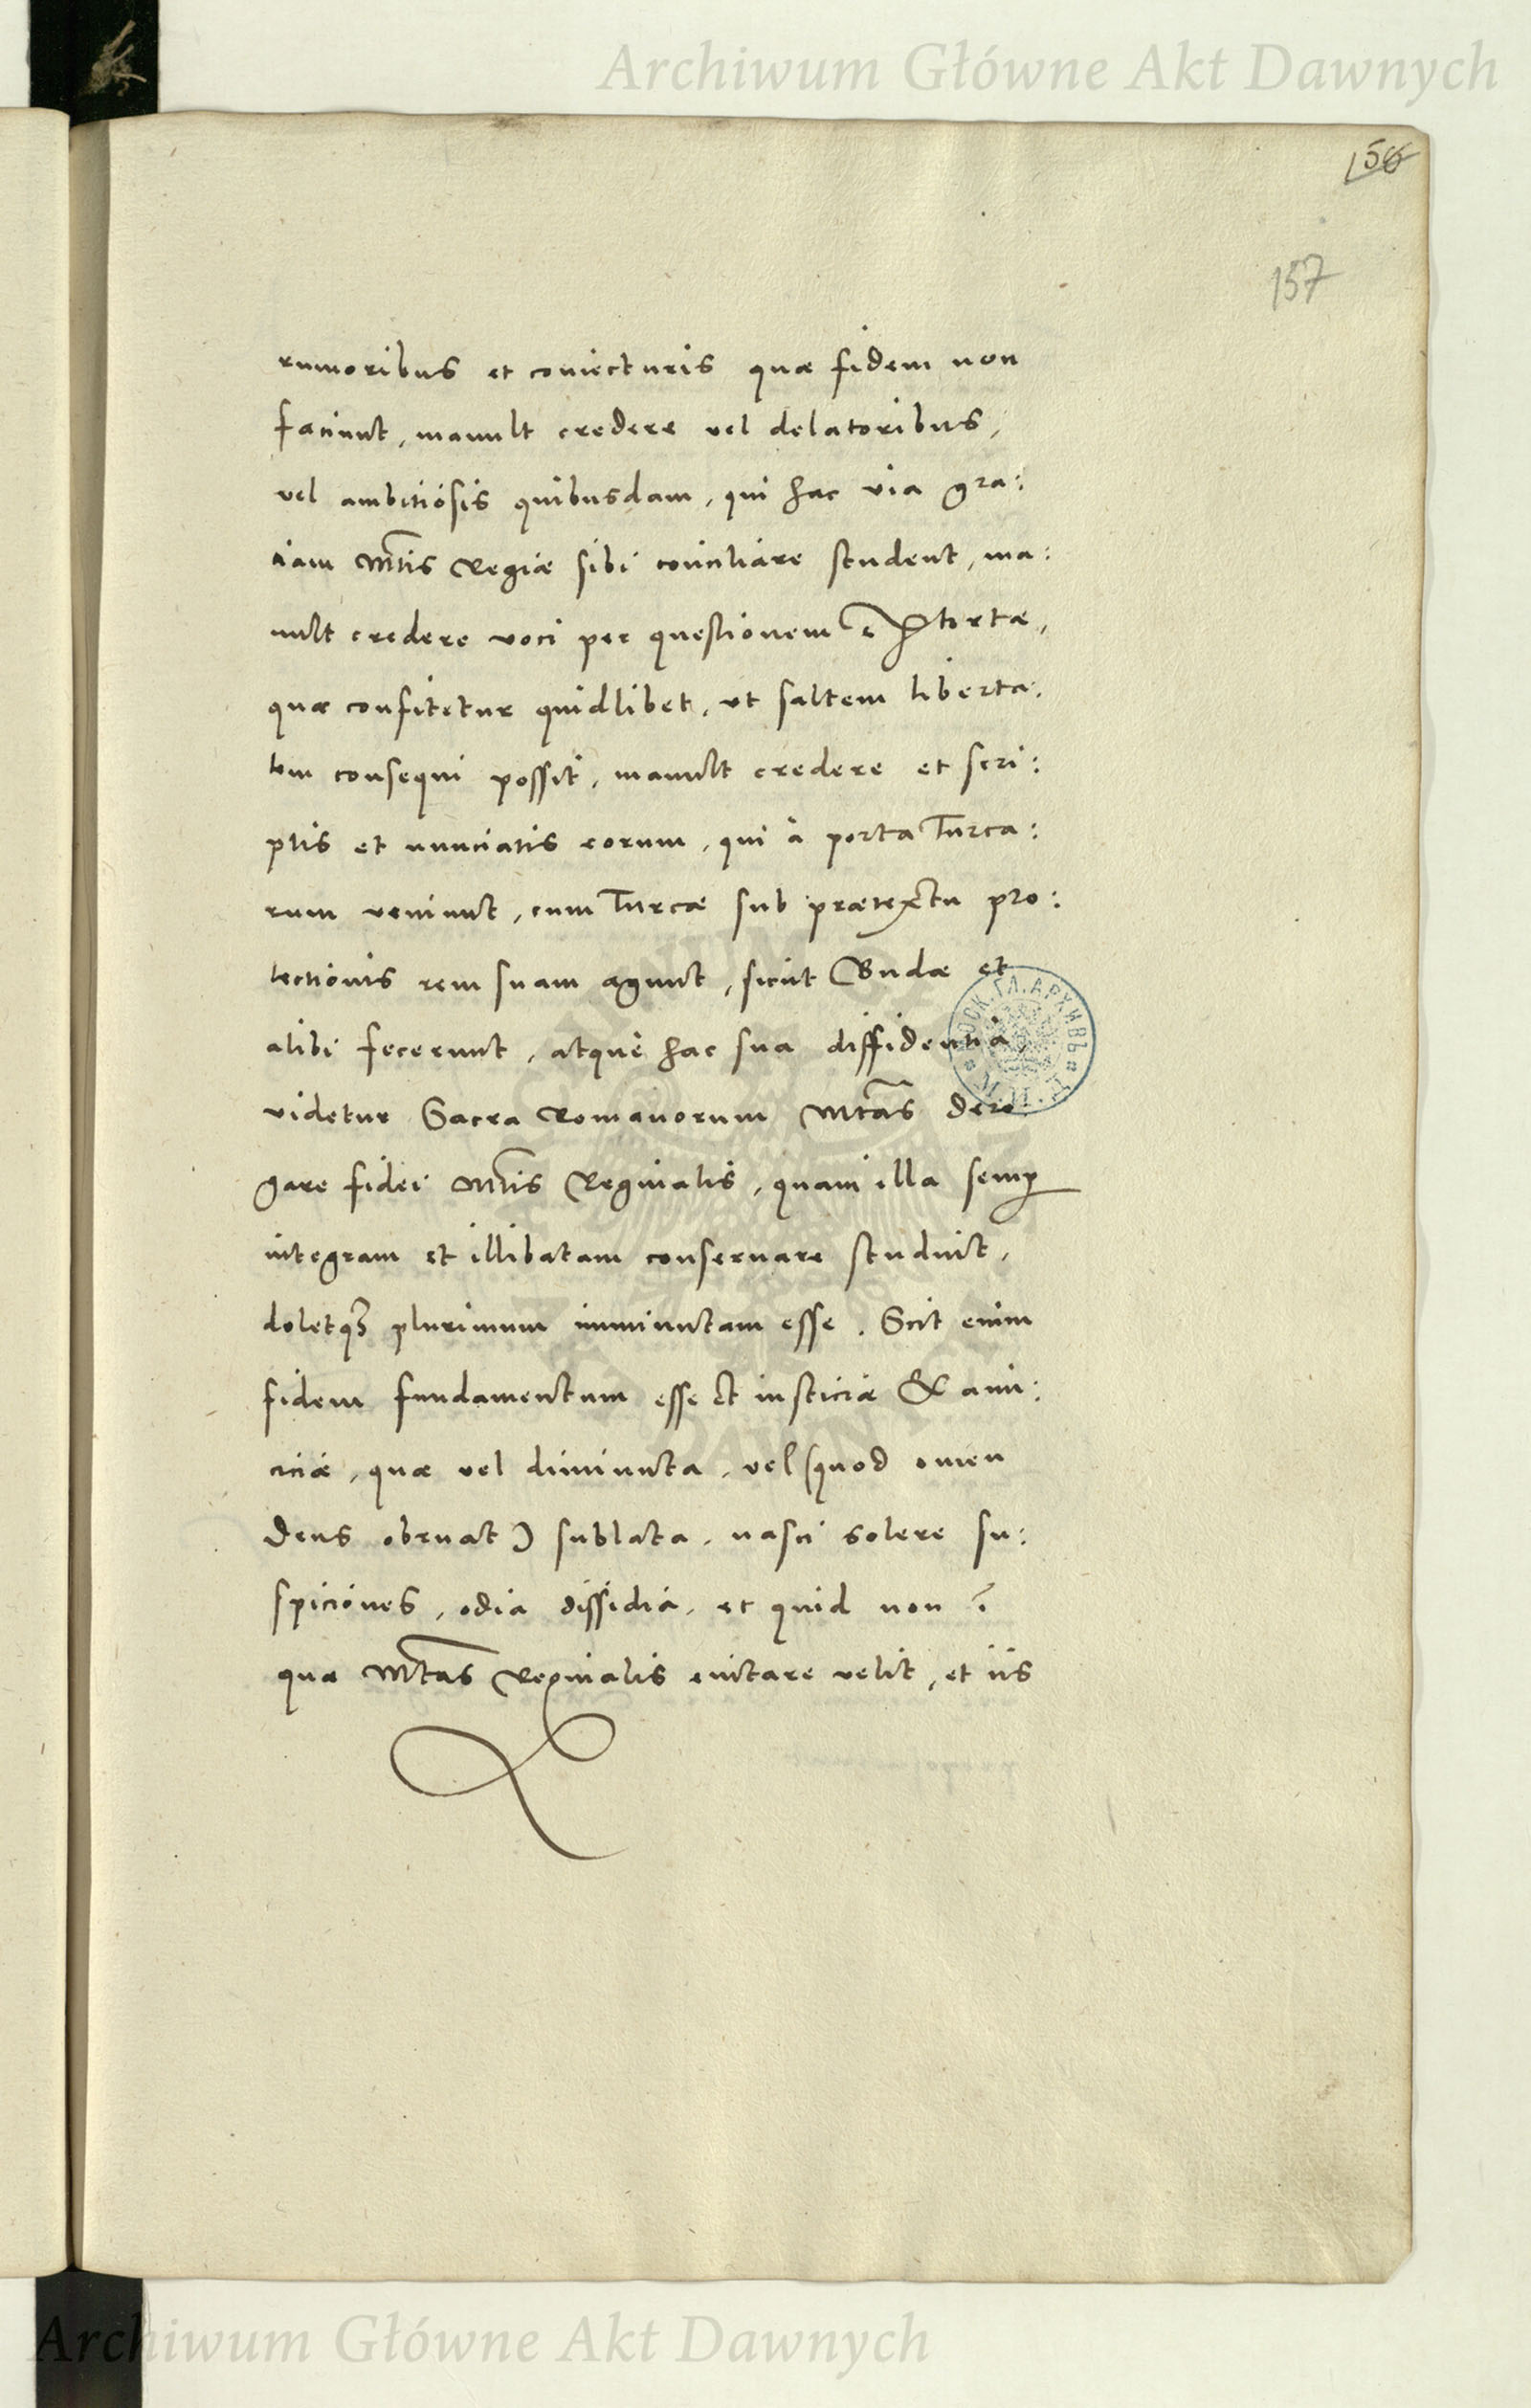 Archiwum Główne Akt Dawnych
156
157
rumoribus et coniecturis quæ fidem non
faciunt, mauult credere vel delatoribus,
vel ambitiosis quibusdam, qui hac via gra:
ciam Mtis Regiæ sibi conciliare student, ma:
uult credere voci per questionem extortæ,
quæ confitetur quidlibet, vt saltem liberta:
tem consequi possit, mauult credere et scri:
ptis et nunciatis eorum, qui à porta Turca:
rum veniunt, cum Turcæ sub prætextu pro:
tectionis rem suam agunt, sicut Budæ et
alibi fecerunt, atque hac sua diffidentia,
videtur Sacra Romanorum Mtas dero
gare fidei Mtis Reginalis, quam illa semp
integram et illibatam conseruare studuit,
doletq3 plurimum imminutam esse. Scit enim
fidem fundamentum esse et iusticiæ & ami:
ciciæ, quæ vel diminuta, vel (quod omen
Deus obruat) sublata, nasci solere su:
spiciones, odia dissidia, et quid non?
quæ Mtas Reginalis euitare velit, et iis
Archiwum Główne Akt Dawnych